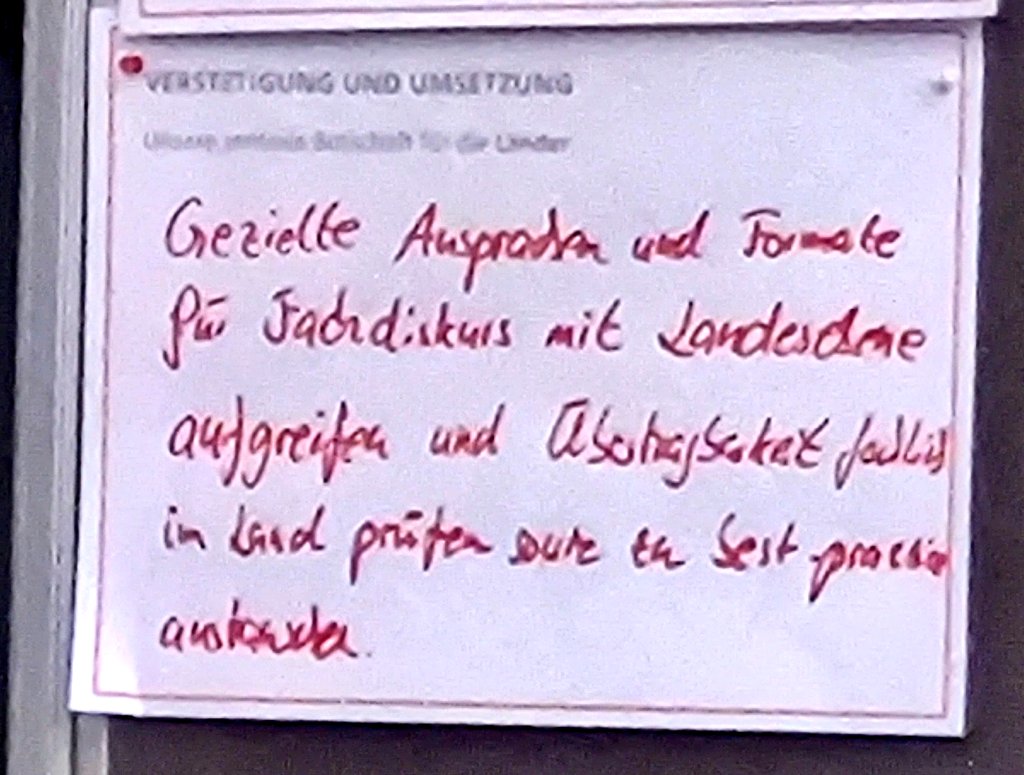 VERSTETIGUNG UND UMSETZUNG
Unsere zentrale Botschaft für die Länder
Gezielte Ansprachen und Formate
für Fachdiskurs mit Landesebene
aufgreifen und Übertragbarkeit fachlich
im Land prüfen sowie zu best practice
austauschen.